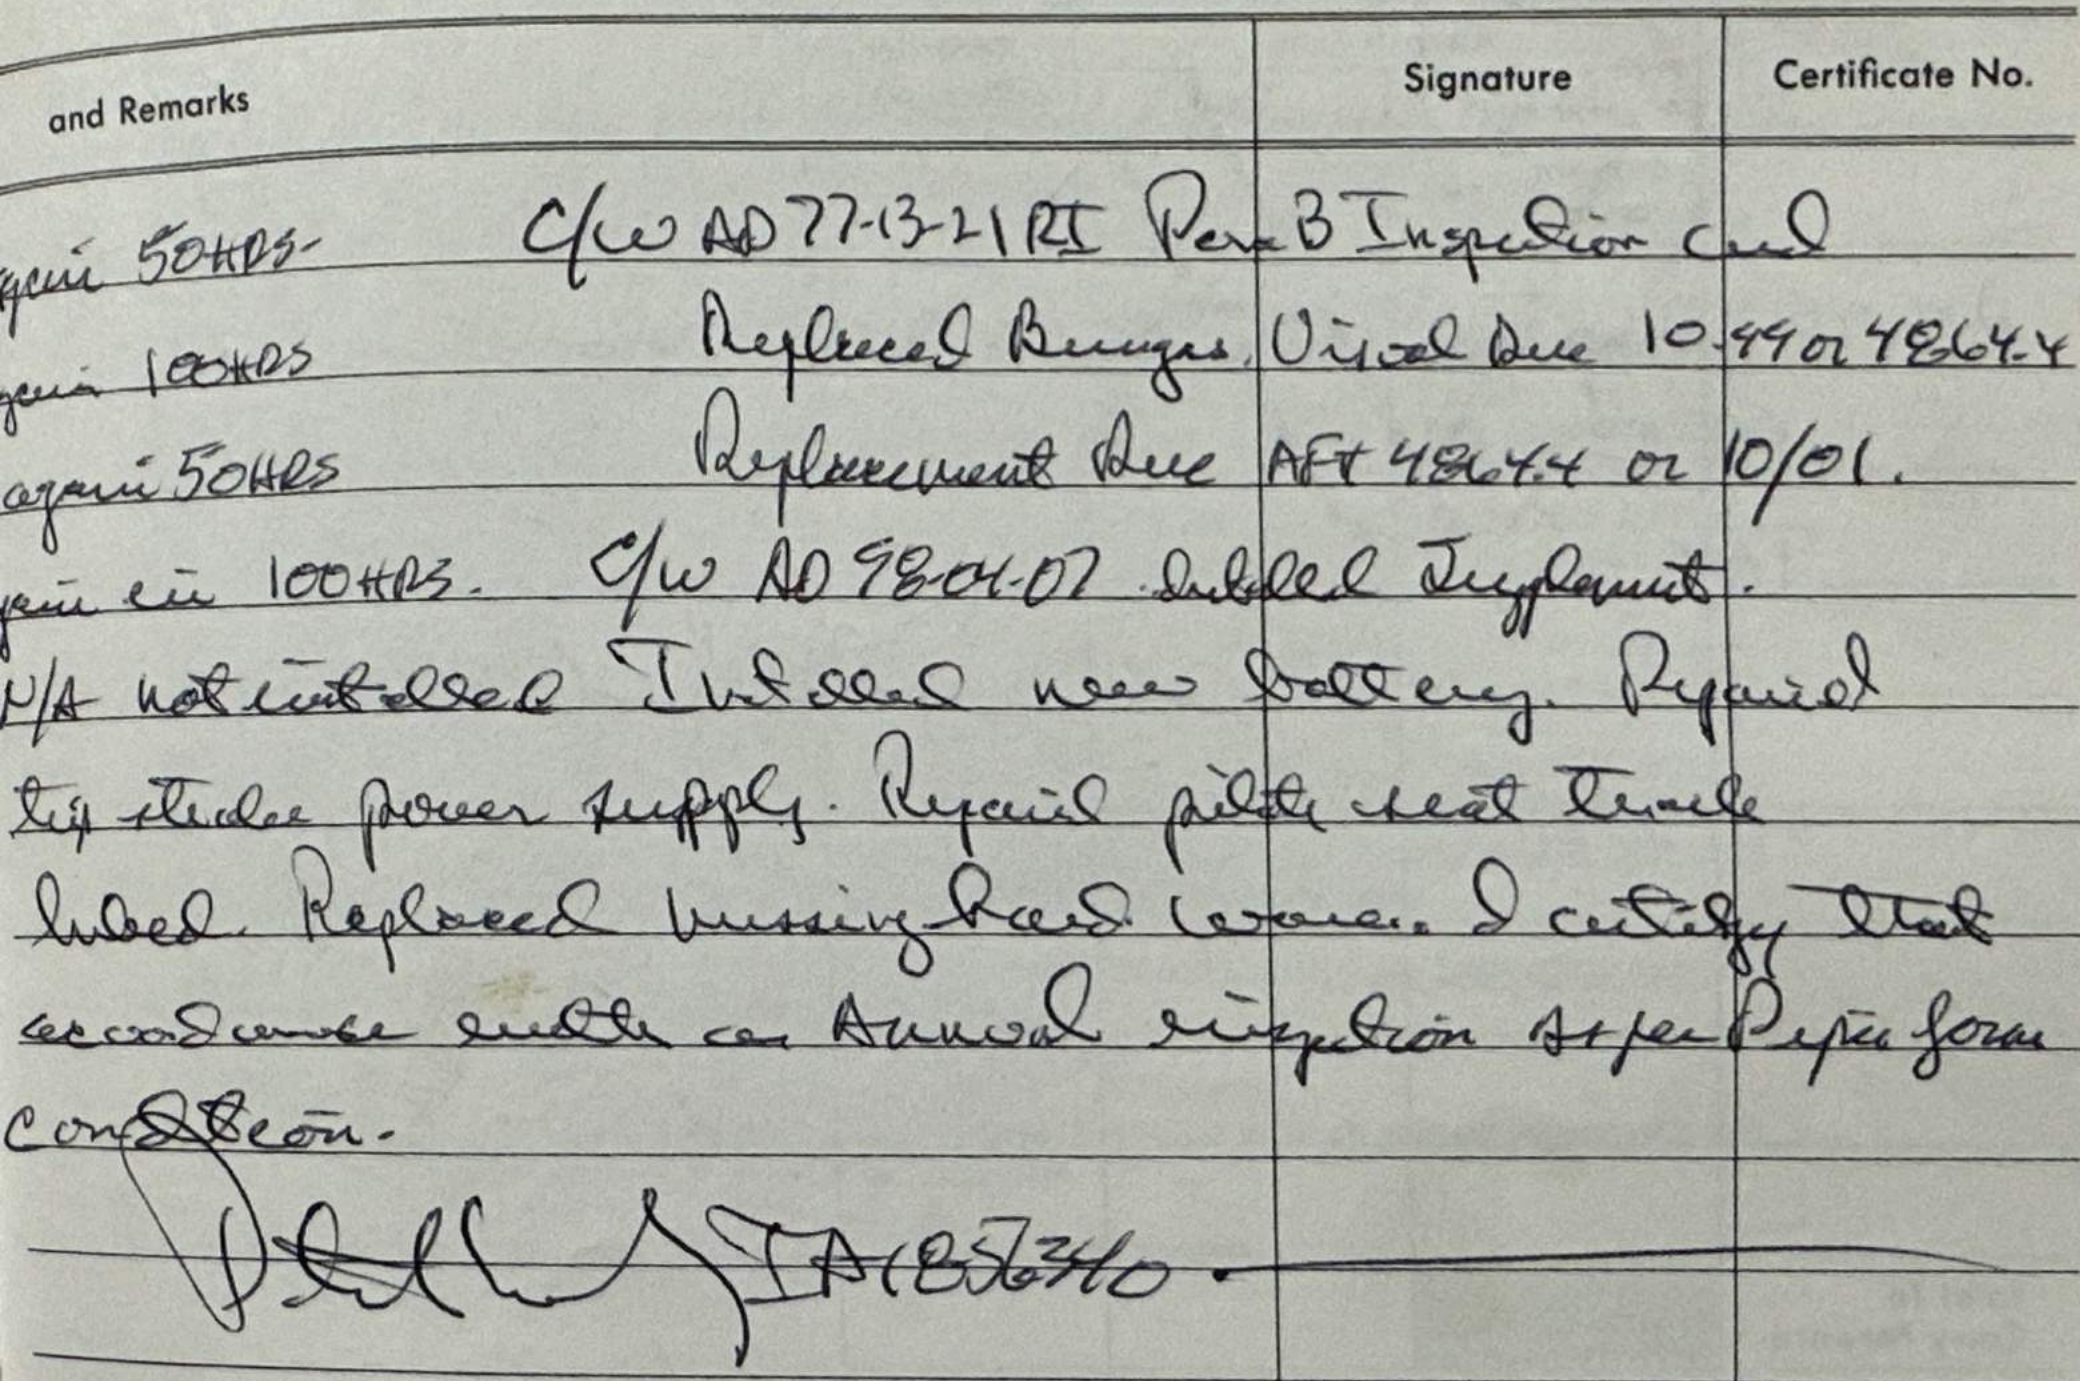 and Remarks Signature Certificate No.
again 50HRS- C/W AD 77-13-21 R1 Para B Inspection and
again 100HRS Replaced Bungees. Visual Due 10.99 or 4864.4
again 50HRS Replacement Due AFT 4864.4 or 10/01.
again in 100HRS. C/W AD 98-04-07 Installed Supplement.
N/A not installed Installed new battery. Repaired
tip strobe power supply. Repaired pilots seat track
lubed. Replaced missing hard ware. I certify that
accordance with an Annual inspection As per Piper form
condition.
IA1856340